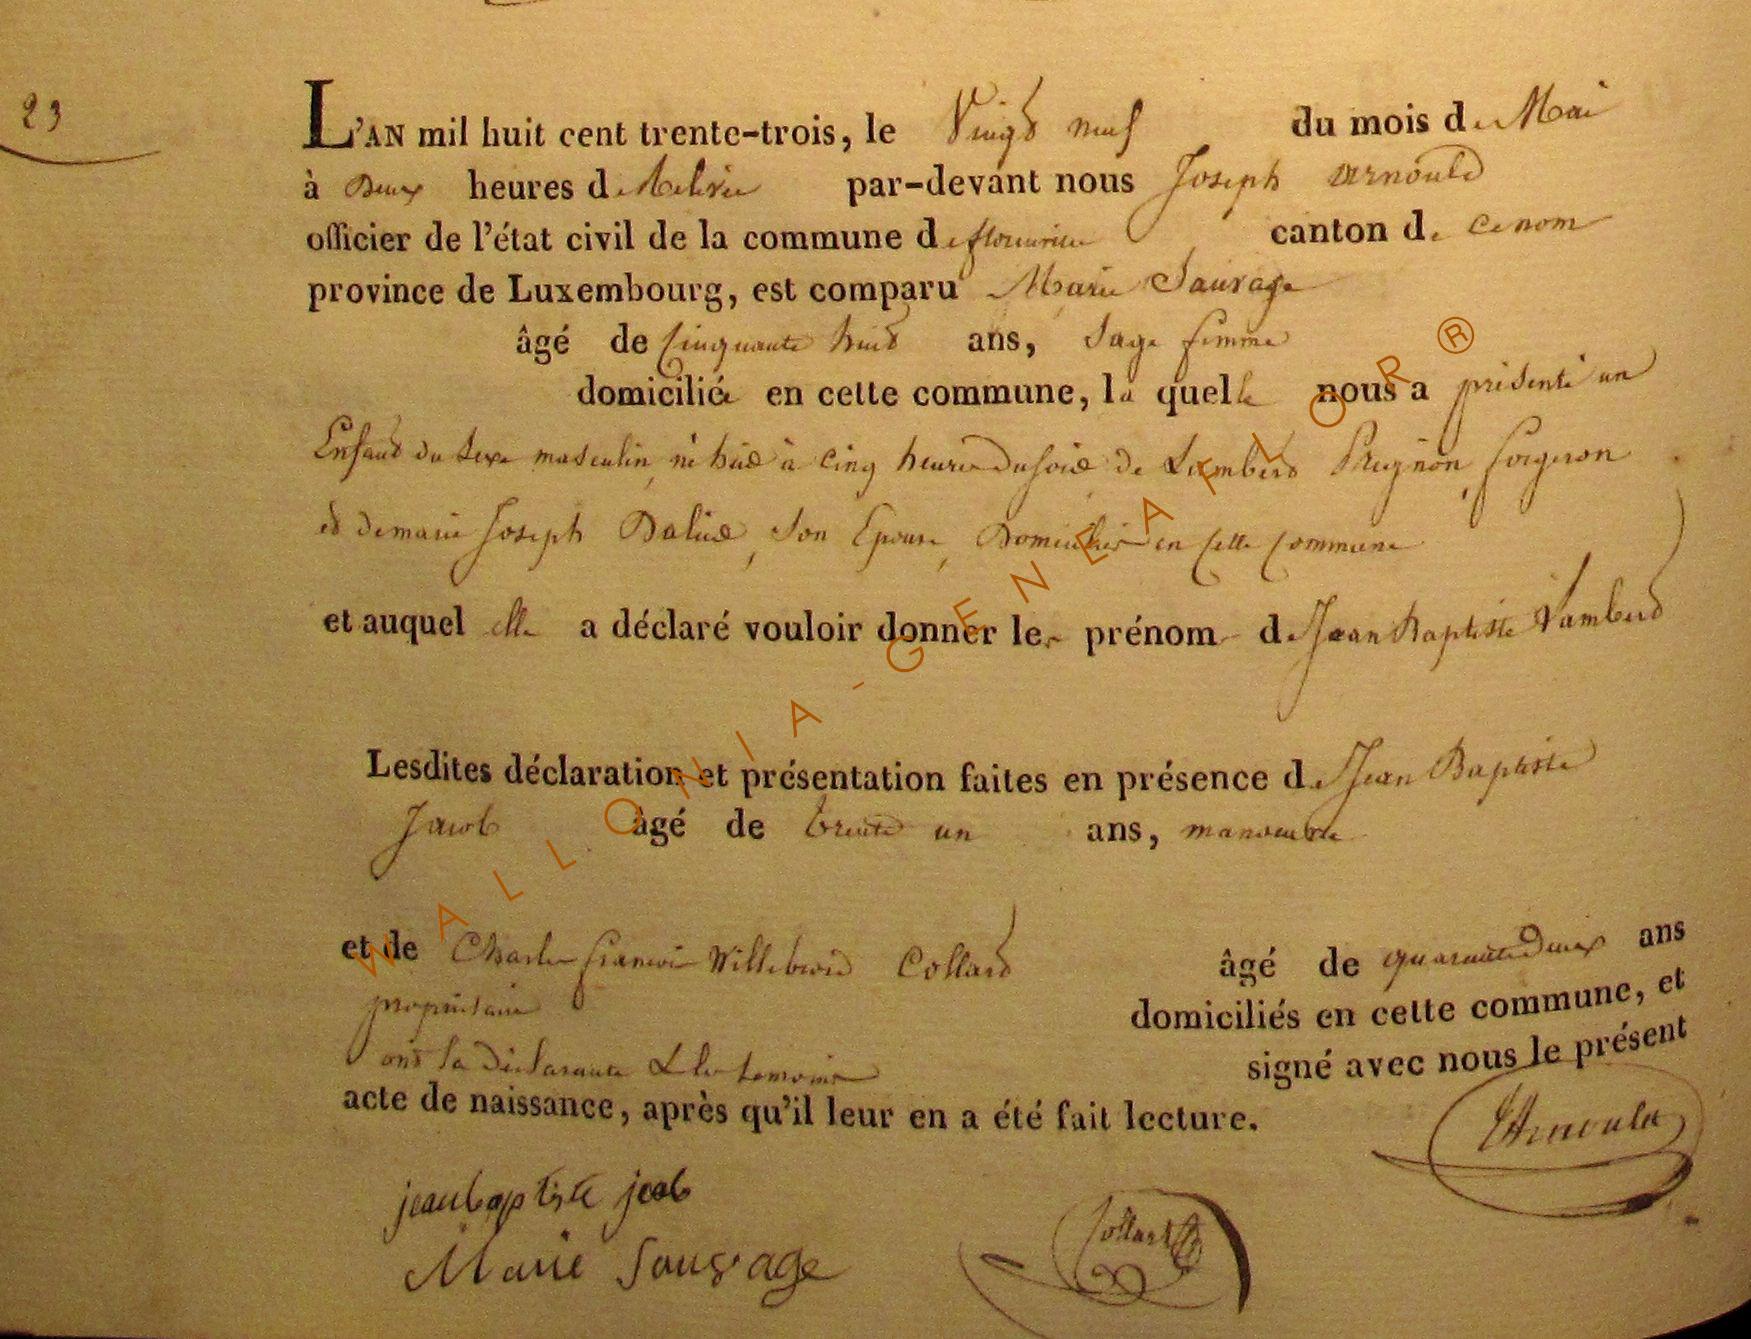 23
L'AN mil huit cent trente-trois, le Vingt neuf du mois de Mai
à Deux heures de Relevée par-devant nous Joseph Arnould
officier de l'état civil de la commune de florenville canton de ce nom
province de Luxembourg, est comparu Marie Sauvage
âgé de Cinquante huit ans, Sage femme
domiciliée en cette commune, la quelle nous a présenté un
Enfant du sexe masculin, né hier à cinq heures du soir de Lambert Prignon, forgeron
et de marie Joseph Son Epouse, Domiciliés en Cette Commune
et auquel elle a déclaré vouloir donner les prénom de Jean Baptiste Lambert
Lesdites déclaration et présentation faites en présence de Jean Baptiste
Jacob âgé de trente un ans, manoeuvre
et de Charles francois Willebrord Collard âgé de quarante Deux ans
propriétaire domiciliés en cette commune, et
ont la Déclarante & les temoins signé avec nous le présent
acte de naissance, après qu'il leur en a été fait lecture.
Arnould
jean baptiste jacob
Marie Sauvage
Collard
WALLONIA-GENEAFLOR®